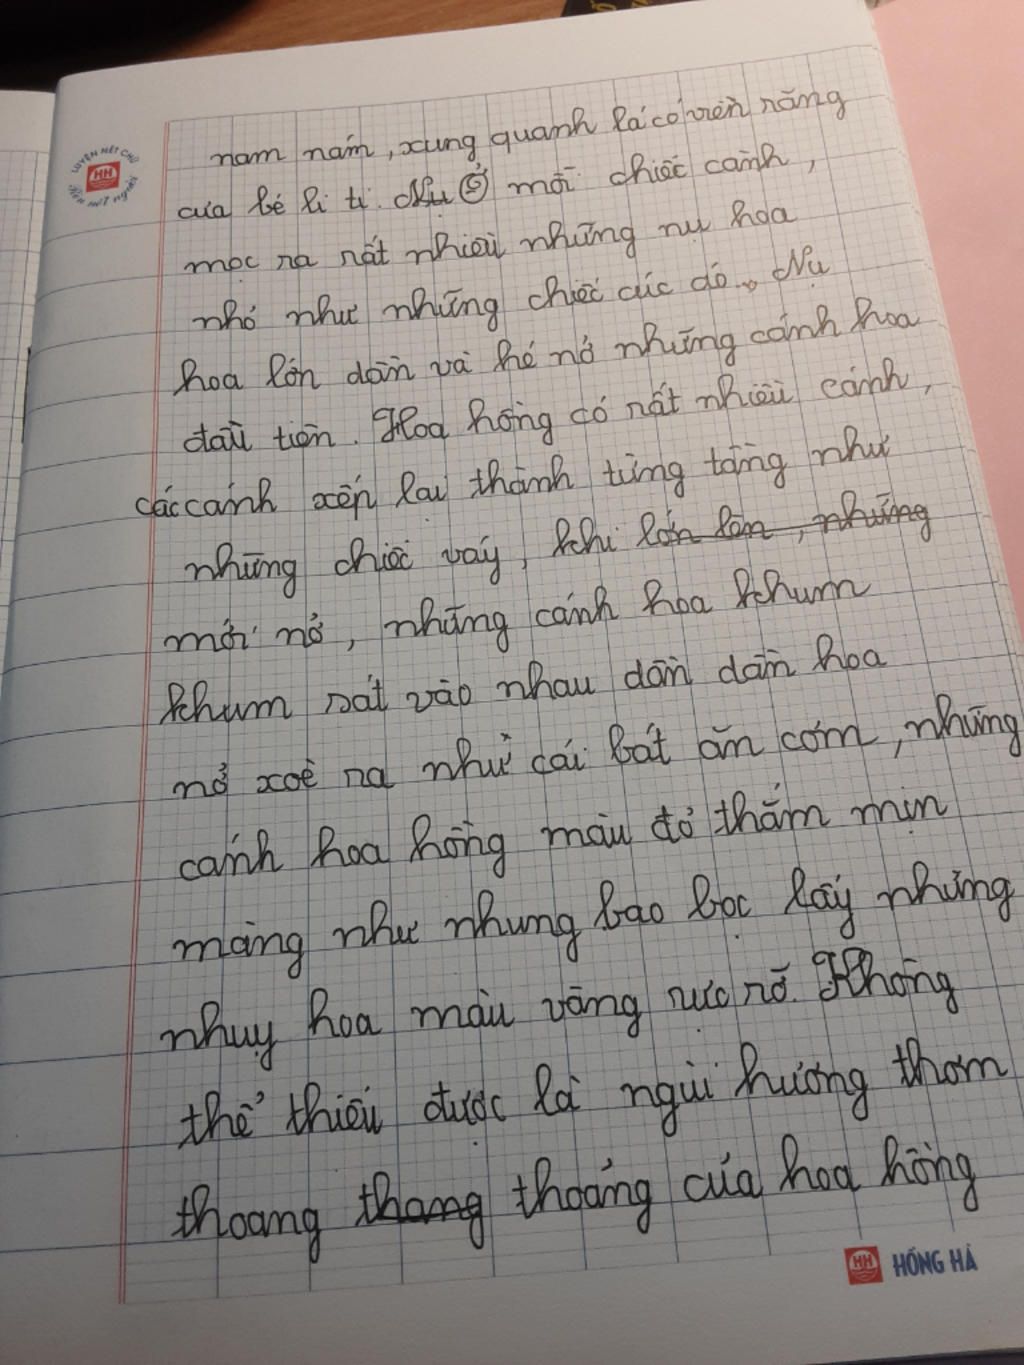 LUYỆN NÉT CHỮ
HH
Rèn nết người
nam nám, xung quanh lá có viền răng
cưa bé li ti. Nụ Ở mỗi chiếc cành,
mọc ra rất nhiều những nụ hoa
nhỏ như những chiếc cúc áo. Nụ
hoa lớn dần và hé nở những cánh hoa
đầu tiên. Hoa hồng có rất nhiều cánh,
các cánh xếp lại thành từng tầng như
những chiếc váy, khi lớn lên, những
mới nở, những cánh hoa khum
khum sát vào nhau dần dần hoa
nở xoè ra như cái bát ăn cơm, những
cánh hoa hồng màu đỏ thắm mịn
màng như nhung bao bọc lấy những
nhuỵ hoa màu vàng rực rỡ. Không
thể thiếu được là ngùi hương thơm
thoang thang thoảng của hoa hồng
HH HỒNG HÀ